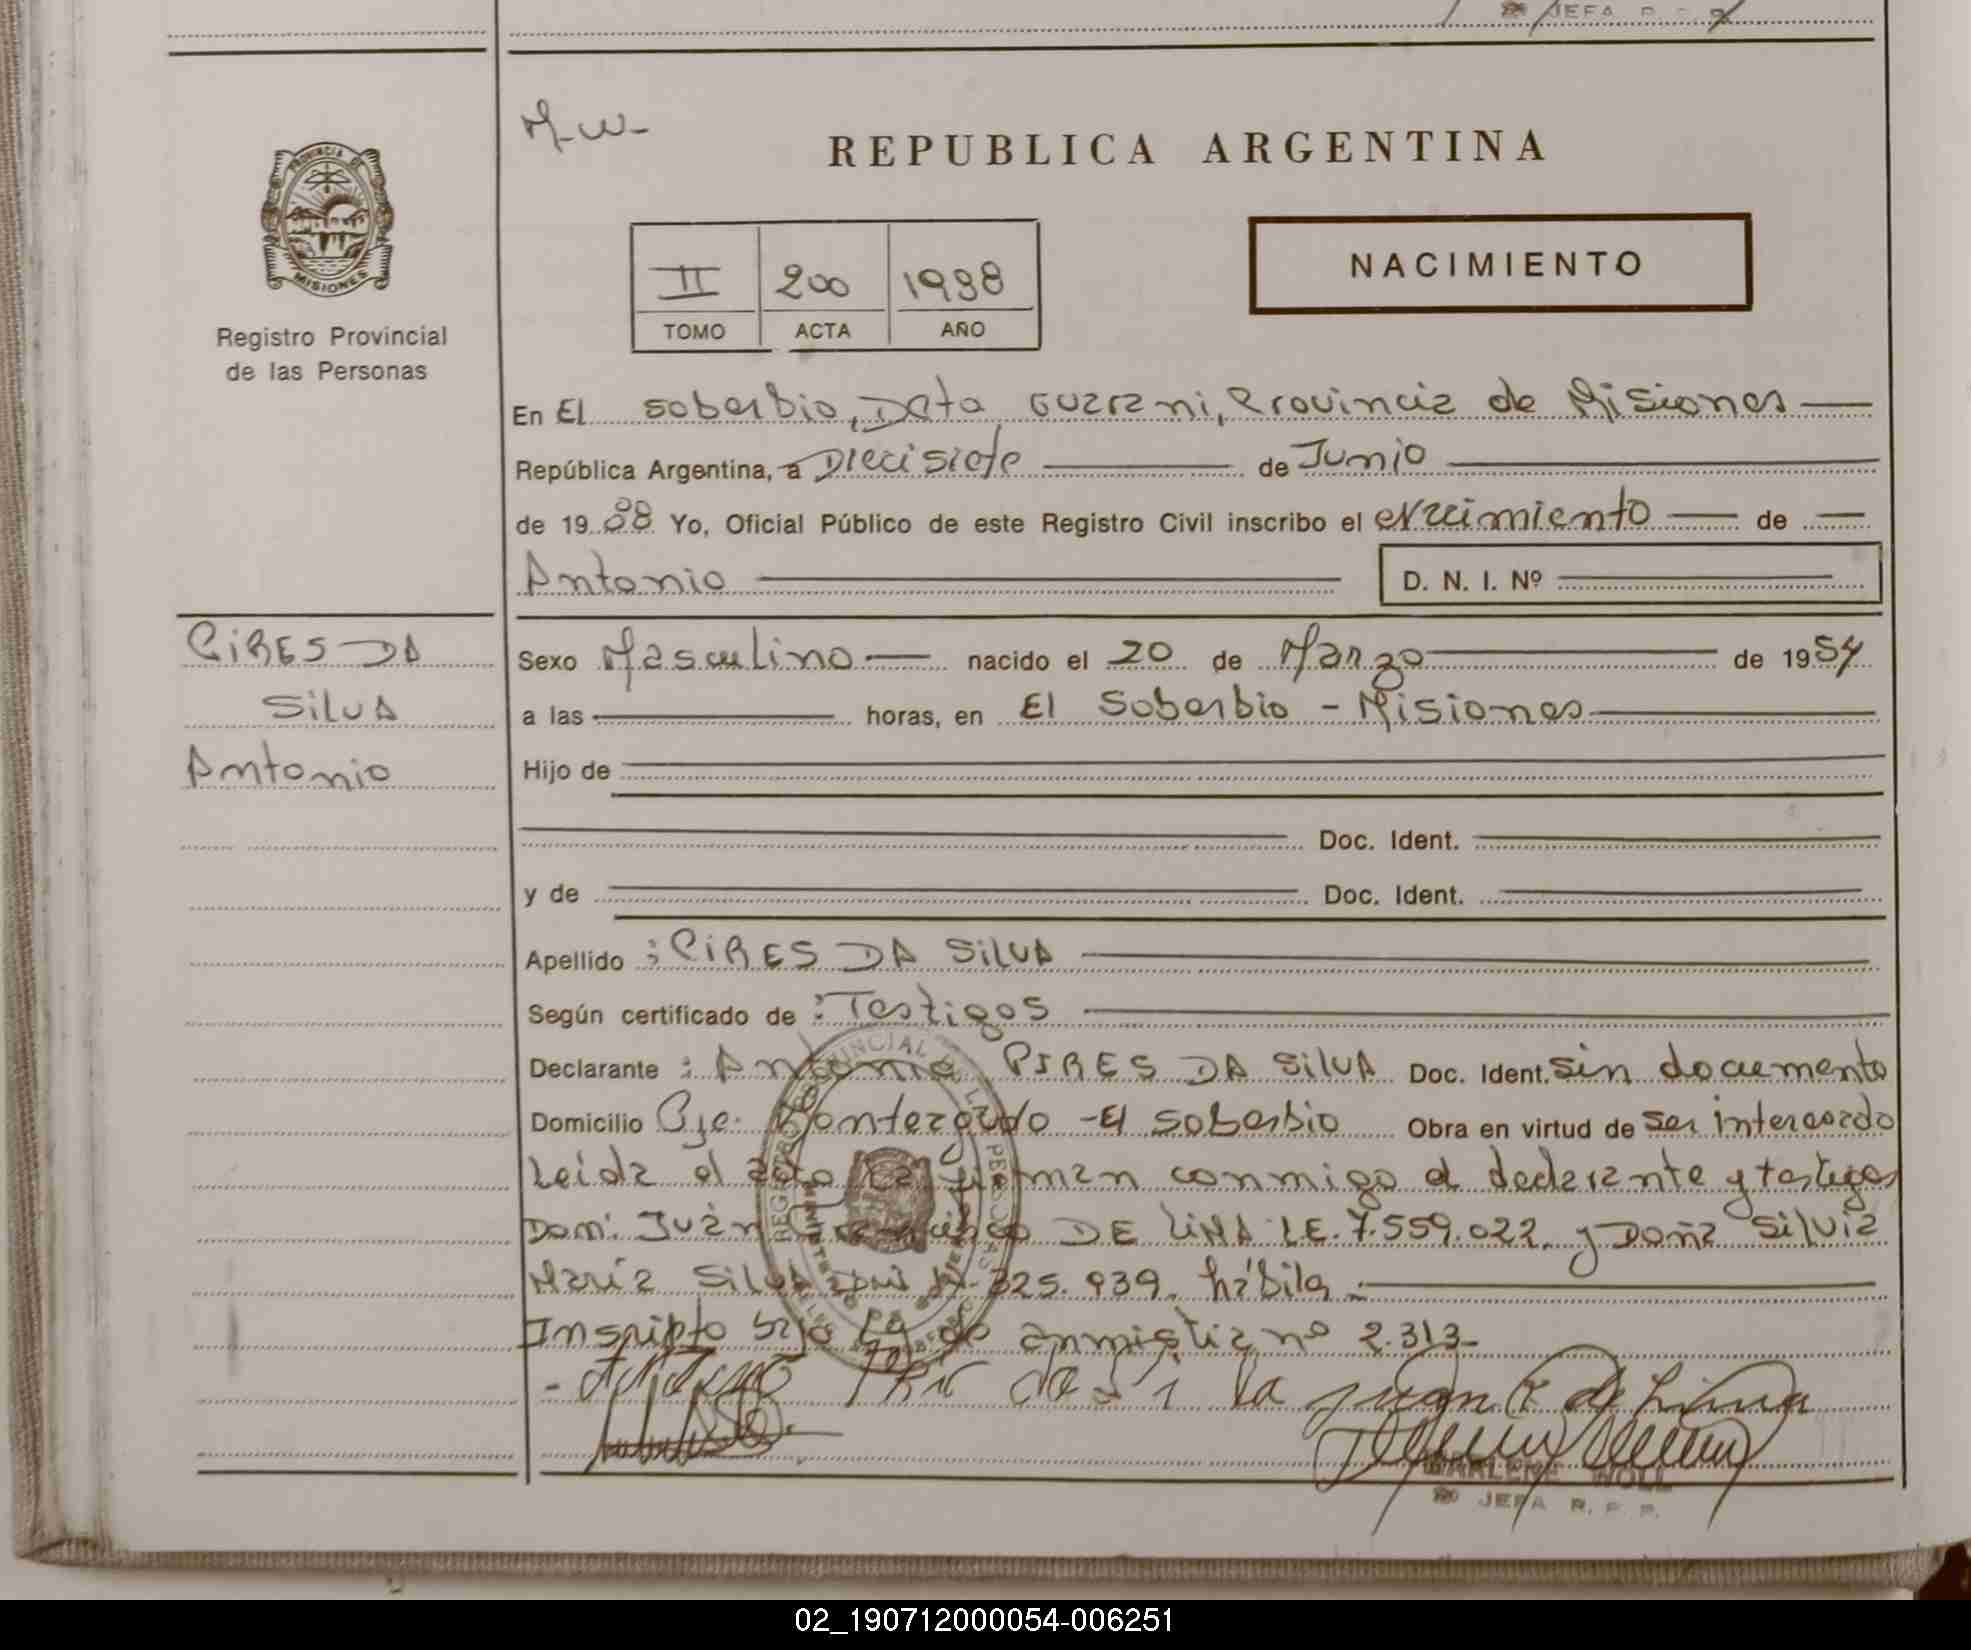 JEFA R. P. P.
M-W-
REPUBLICA ARGENTINA
PROVINCIA DE
MISIONES
Registro Provincial
de las Personas
II 200 1988
TOMO ACTA AÑO
NACIMIENTO
En El Soberbio, Dpto Guarani, Provincia de Misiones
República Argentina, a Diecisiete de Junio
de 1988 Yo, Oficial Público de este Registro Civil inscribo el Nacimiento de
Antonio D. N. I. Nº
PIRES DA
SilVA
Antonio
Sexo Masculino nacido el 20 de Marzo de 1954
a las horas, en El Soberbio - Misiones
Hijo de
Doc. Ident.
y de Doc. Ident.
Apellido : PIRES DA SilVA
Según certificado de : Testigos
Declarante : Antonio PIRES DA SilVA Doc. Ident. Sin documento
Domicilio Pje. Monteagudo - El Soberbio Obra en virtud de ser interesado
Leida el acta la firman conmigo el declarante y testigos
Don: Juán Francisco DE LIMA LE. 7.559.022. y Doña Silvia
María Silva DNI 325.939. hábiles
Inscripto bajo Ley de anmistia nº 2.313-
Juan F. de Lima
MARLENE WOLL
JEFA R. P. P.
02_190712000054-006251